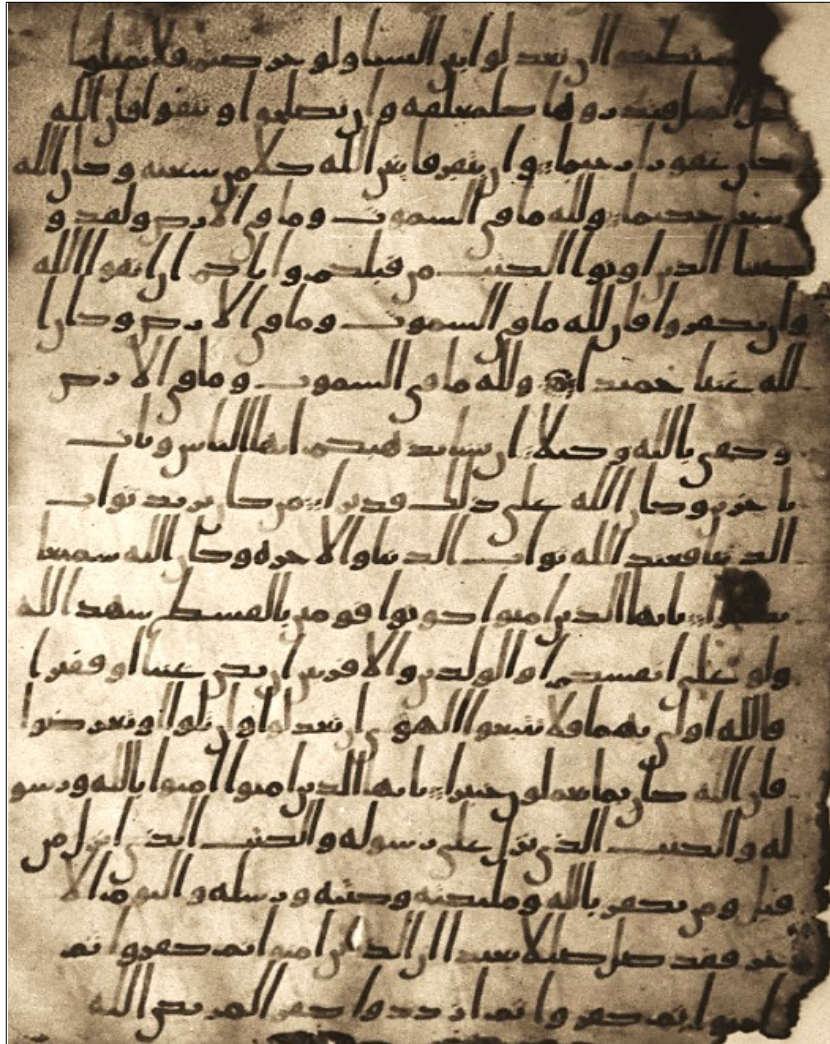 تستطيعوا ان تعدلوا بين النسا ولو حرصتم فلا تميلوا
كل الميل فتذروها كالمعلقه وان تصلحوا وتتقوا فان الله
كان غفورا رحيما وان يتفرقا يغن الله كلا من سعته وكان الله
وسعا حكيما ولله ما في السموت وما في الارض ولقد و
صينا الذين اوتوا الكتب من قبلكم واياكم ان اتقوا الله
وان تكفروا فان لله ما في السموت وما في الارض وكان ا
لله غنيا حميدا ولله ما في السموت وما في الارض
وكفى بالله وكيلا ان يشا يذهبكم ايها الناس ويات
باخرين وكان الله على ذلك قديرا من كان يريد ثواب
الدنيا فعند الله ثواب الدنيا والاخره وكان الله سميعا
بصيرا يايها الذين امنوا كونوا قومين بالقسط شهدا لله
ولو على انفسكم او الولدين والاقربين ان يكن غنيا او فقيرا
فالله اولى بهما فلا تتبعوا الهوى ان تعدلوا وان تلوا او تعرضوا
فان الله كان بما تعملون خبيرا يايها الذين امنوا امنوا بالله ورسو
له والكتب الذي نزل على رسوله والكتب الذي انزل من
قبل ومن يكفر بالله وملئكته وكتبه ورسله واليوم الا
خر فقد ضل ضللا بعيدا ان الذين امنوا ثم كفروا ثم
امنوا ثم كفروا ثم ازددوا كفرا لم يكن الله